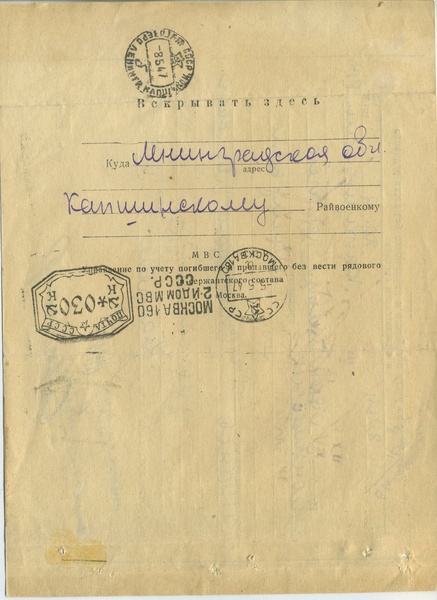 СССР
-8547
Вскрывать здесь
Куда Ленинградская обл.
адрес
Капшинскому Райвоенкому
МВС
Управление по учету погибшего и пропавшего без вести рядового
и сержантского состава
г. Москва.
МОСКВА 160
-5.5.47
СССР
МОСКВА 160
2-й ДОМ МВС
СССР.
030
К К
ПОЧТА СССР